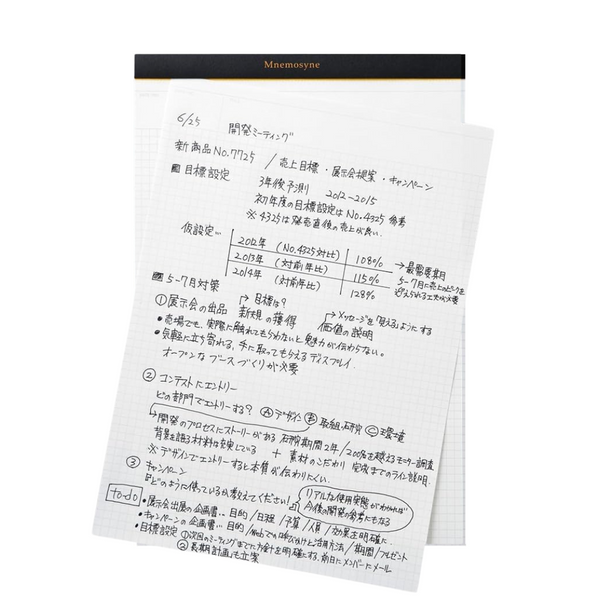 Mnemosyne
6/25 開発ミーティング
新商品No.7725 / 売上目標・展示会提案・キャンペーン
目標設定 3年後予測 2012〜2015
初年度の目標設定はNo.4325参考
※4325は発売直後の売上が良い.
仮設定… 2012年 (No.4325対比) 108%
2013年 (対前年比) 115%
2014年 (対前年比) 128%
→最需要期
5-7月に売上のピークを
迎えられる工夫が必要
5-7月対策
→目標は? →メッセージを「見える」ようにする
①展示会の出品 新規の獲得 価値の説明
•売場でも、実際に触れてもらわないと魅力が伝わらない。
•気軽に立ち寄れる、手に取ってもらえるディスプレイ.
オープンなブースづくりが必要
②コンテストにエントリー
どの部門でエントリーする? Ⓐデザイン Ⓑ取組・研究 Ⓒ環境
→開発のプロセスにストーリーがある 研究期間2年/200名を越えるモニター調査
背景を語る材料は充実している + 素材のこだわり 完成までのライン説明.
※デザインでエントリーすると本質が伝わりにくい.
③キャンペーン
どのように使っているか教えてください! リアルな使用実態がわかれば
今後の開発の参考にもなる
to-do
•展示会出展の企画書… 目的/日程/予算/人員/効果を明確に
•キャンペーンの企画書… 目的/webでの呼びかけと活用方法/期間/プレゼント
•目標設定 ①次回のミーティングまでに方針を明確にする、前日にメンバーにメール
②長期計画も立案